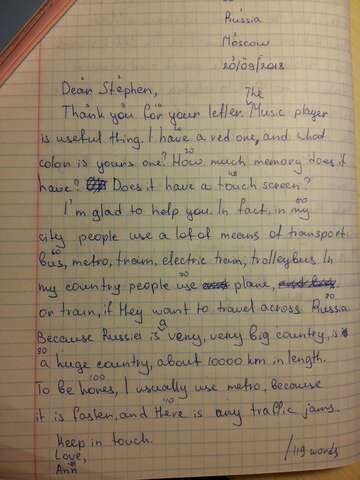 Russia
Moscow
20/09/2018
Dear Stephen,
The
Thank you for your letter. Music player
is useful thing. I have a red one, and what
color is yours one? How much memory does it
have? Does it have a touch screen?
I'm glad to help you. In fact, in my
city people use a lot of means of transport:
bus, metro, tram, electric train, trolleybus. In
my country people use plane,
or train, if they want to travel across Russia.
Because Russia is very, very big country, is
a huge country, about 10000 km in length.
To be hones, I usually use metro, because
it is faster, and there is any traffic jams.
Keep in touch.
Love,
Ann
/119 words